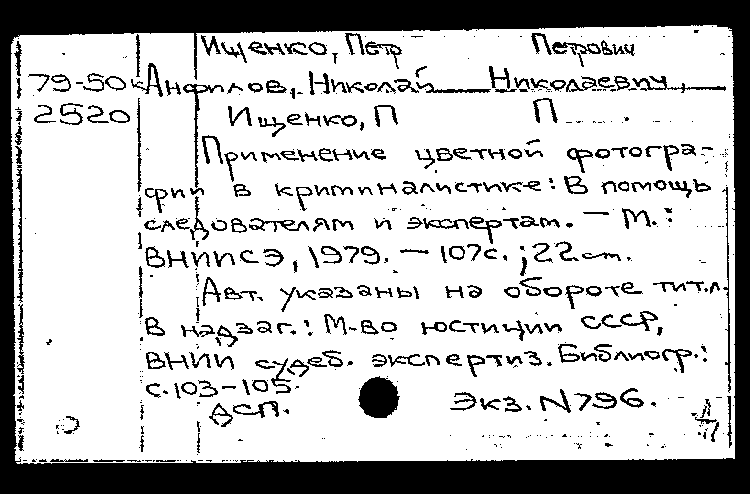 Ищенко, Петр Петрович
79-50к Анфилов, Николай Николаевич,
2520 Ищенко, П П
Применение цветной фотогра-
фии в криминалистике: В помощь
следователям и экспертам. — М.:
ВНИИСЭ, 1979. — 107с. ; 22 см.
Авт. указаны на обороте тит.л.
В надзаг.: М-во юстиции СССР,
ВНИИ судеб. экспертиз. Библиогр.:
с. 103-105.
ДСП. Экз. N 796.